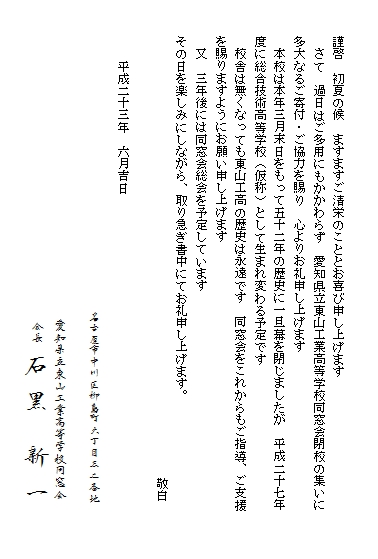 謹啓　初夏の候　ますますご清栄のこととお喜び申し上げます
さて　過日はご多用にもかかわらず　愛知県立東山工業高等学校同窓会閉校の集いに
多大なるご寄付・ご協力を賜り　心よりお礼申し上げます
本校は本年三月末日をもって五十二年の歴史に一旦幕を閉じましたが　平成二十七年
度に総合技術高等学校（仮称）として生まれ変わる予定です
校舎は無くなっても東山工高の歴史は永遠です　同窓会をこれからもご指導、ご支援
を賜りますようにお願い申し上げます
又　三年後には同窓会総会を予定しています
その日を楽しみにしながら、取り急ぎ書中にてお礼申し上げます。
敬白
平成二十三年　六月吉日
名古屋市中川区柳島町六丁目三二番地
愛知県立東山工業高等学校同窓会
会長　石黒　新一